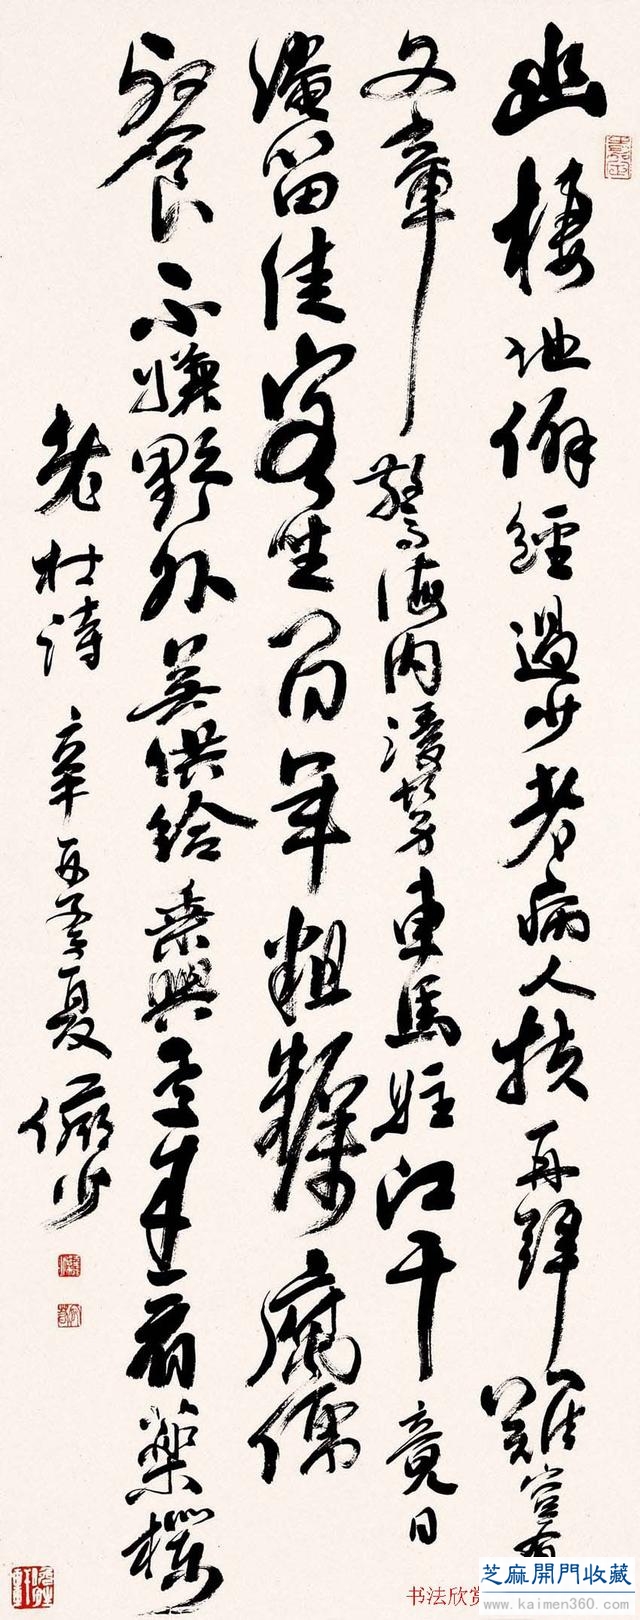 幽棲地僻經過少老病人扶再拜難豈有
文章驚海内漫勞車馬駐江干竟日
淹留佳客坐百年粗糲腐儒
餐不嫌野外無供給乘興還來看藥欄
老杜詩 辛酉夏 儼少
书法欣赏
芝麻開門收藏
www.kaimen360.com